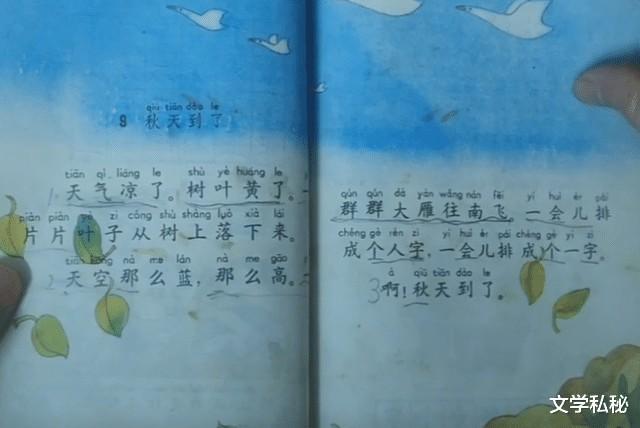 qiū tiān dào le
9 秋天到了
tiān qì liáng le shù yè huáng le
天气凉了。树叶黄了。
piàn piàn yè zi cóng shù shàng luò xià lái
片片叶子从树上落下来。
tiān kōng nà me lán nà me gāo
天空那么蓝，那么高。
qún qún dà yàn wǎng nán fēi yí huì ér pái
群群大雁往南飞，一会儿排
chéng gè rén zì yí huì ér pái chéng gè yī zì
成个人字，一会儿排成个一字。
à qiū tiān dào le
3啊！秋天到了。
文学私秘